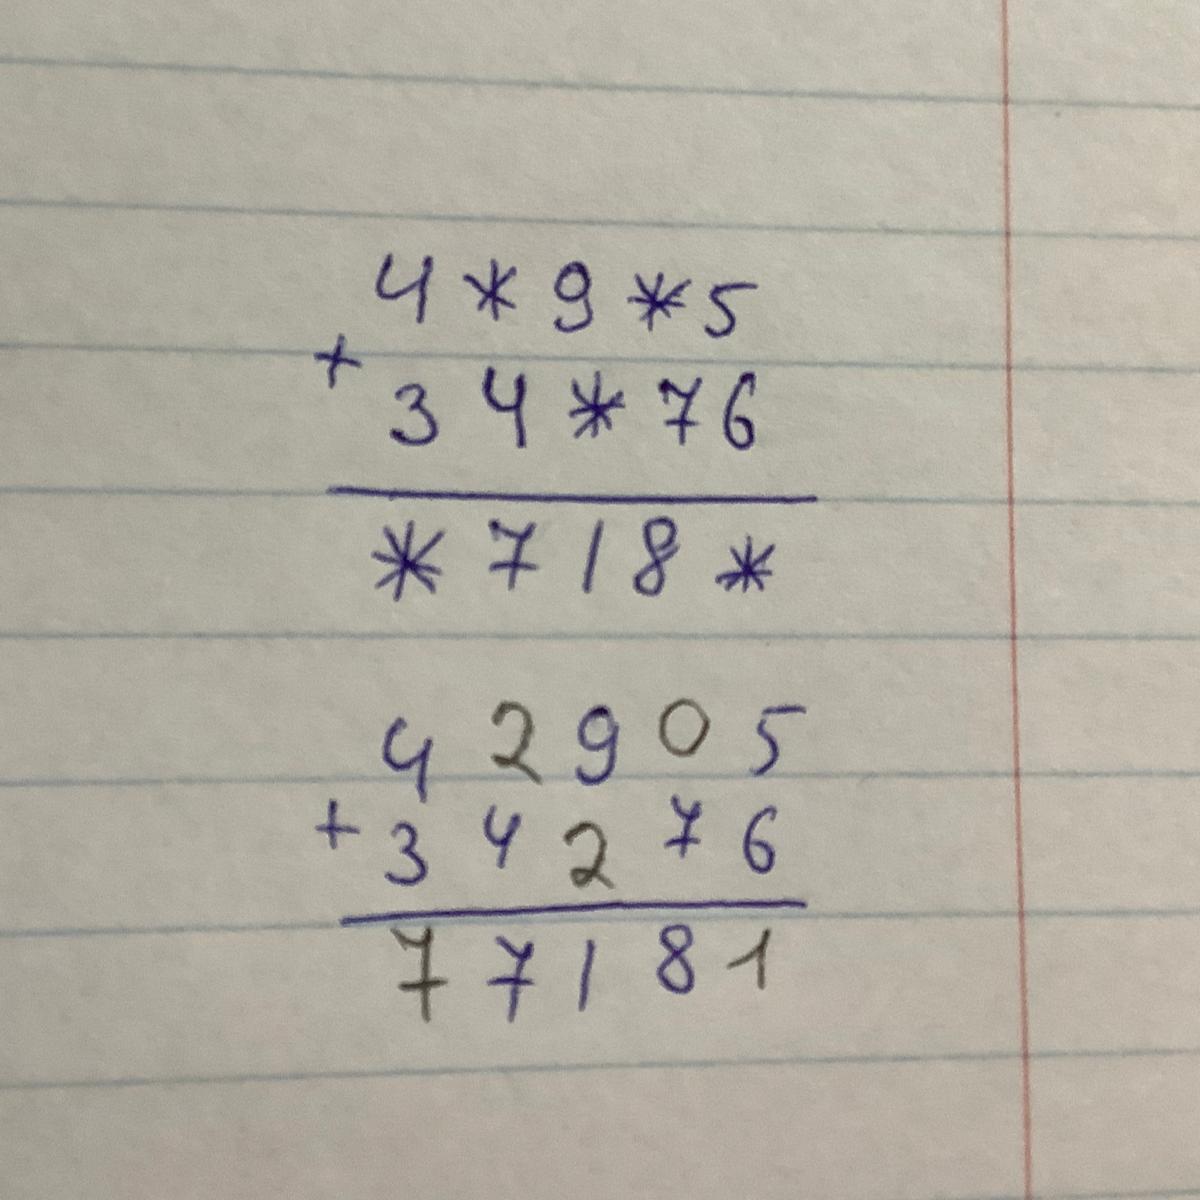 4 * 9 * 5
+
3 4 * 7 6
* 7 1 8 *
4 2 9 0 5
+ 3 4 2 7 6
7 7 1 8 1